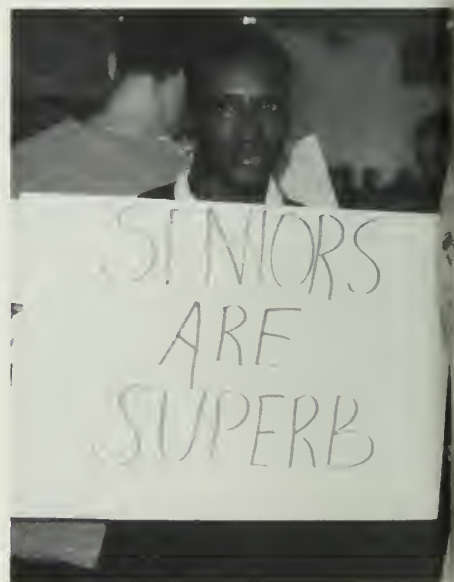 SENIORS
ARE
SUPERB